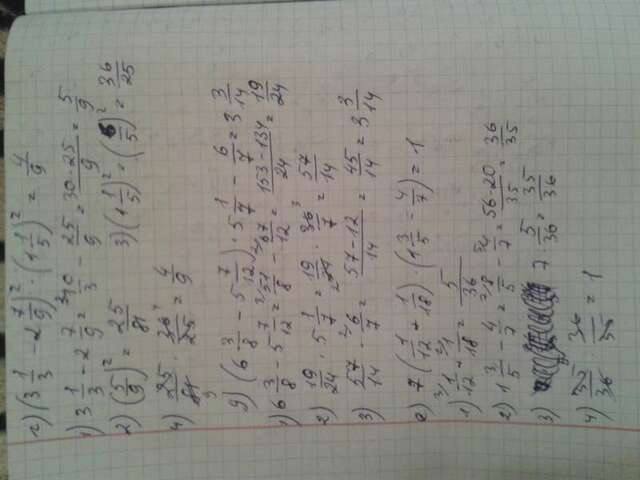 г) (3 1/3 - 2 7/9)² · (1 1/5)² = 4/9
1) 3 1/3 - 2 7/9 = 10/3 - 25/9 = 30-25/9 = 5/9
2) (5/9)² = 25/81 3) (1 1/5)² = (6/5)² = 36/25
4) 25/81 · 36/25 = 4/9
д) (6 3/8 - 5 7/12) · 5 1/7 - 6/7 = 3 3/14
1) 6 3/8 - 5 7/12 = 51/8 - 67/12 = 153-134/24 = 19/24
2) 19/24 · 5 1/7 = 19/24 · 36/7 = 57/14
3) 57/14 - 6/7 = 57-12/14 = 45/14 = 3 3/14
е) 7 (1/12 + 1/18) · (1 3/5 - 4/7) = 1
1) 1/12 + 1/18 = 5/36
2) 1 3/5 - 4/7 = 8/5 - 4/7 = 56-20/35 = 36/35
3) 7 5/36 = 35/36
4) 35/36 · 36/35 = 1